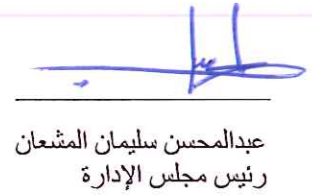 عبدالمحسن سليمان المشعان
رئيس مجلس الإدارة